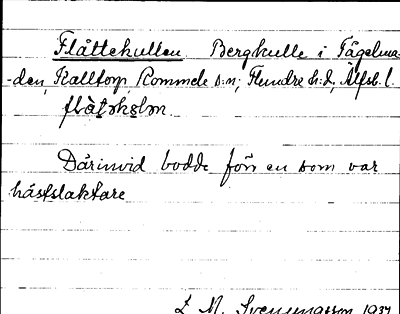 Flåttekullen Bergkulle i Fågelma-
-den, Kalltorp, Rommele s:n, Flundre h:d, Älfsb. l.
Därinvid bodde förr en som var
hästslaktare
L. M. Svenungsson 1937